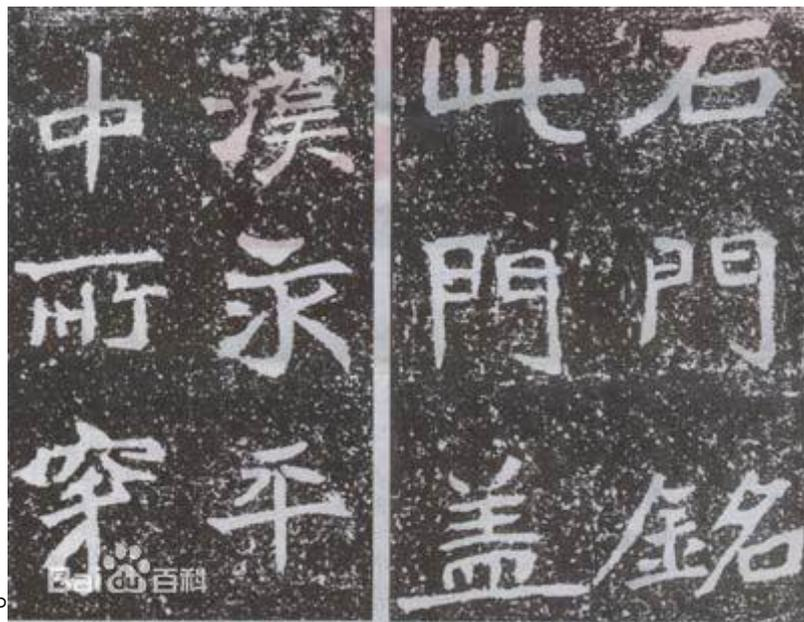 石門銘
此門盖
漢永平
中所穿
Baidu百科